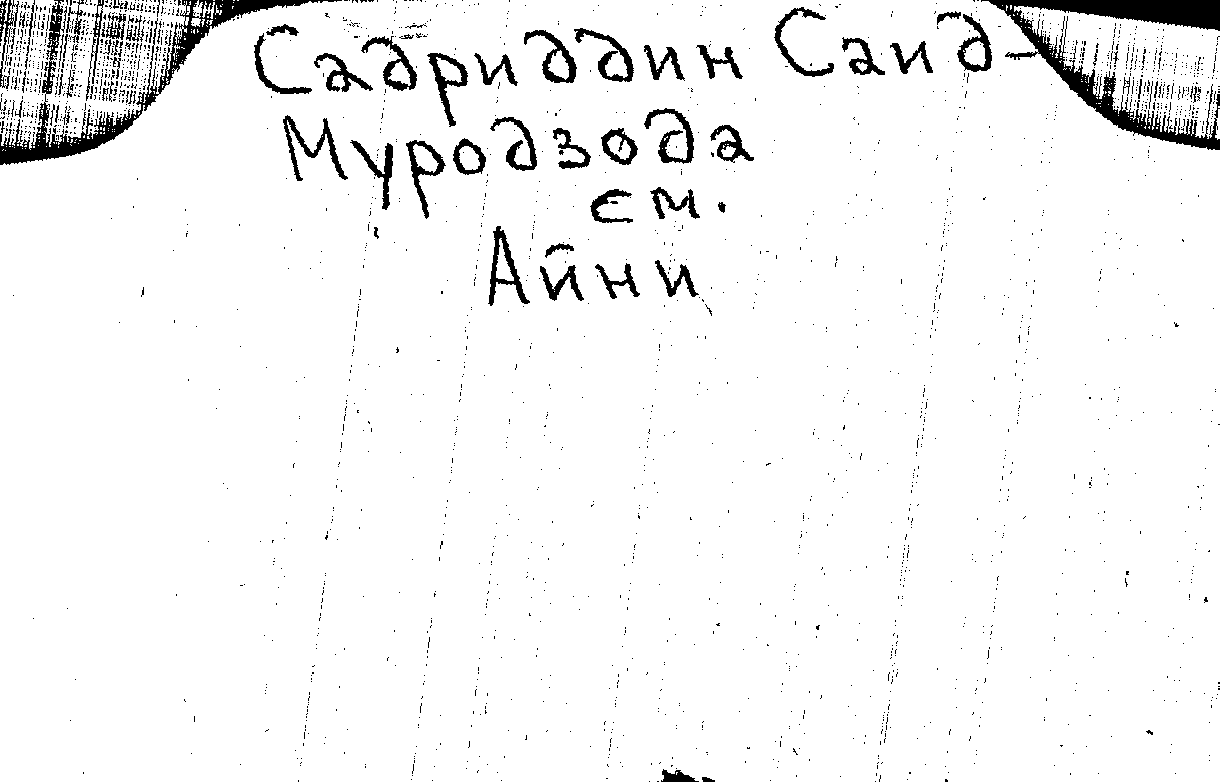 Садриддин Саид-
Муродзода
см.
Айни